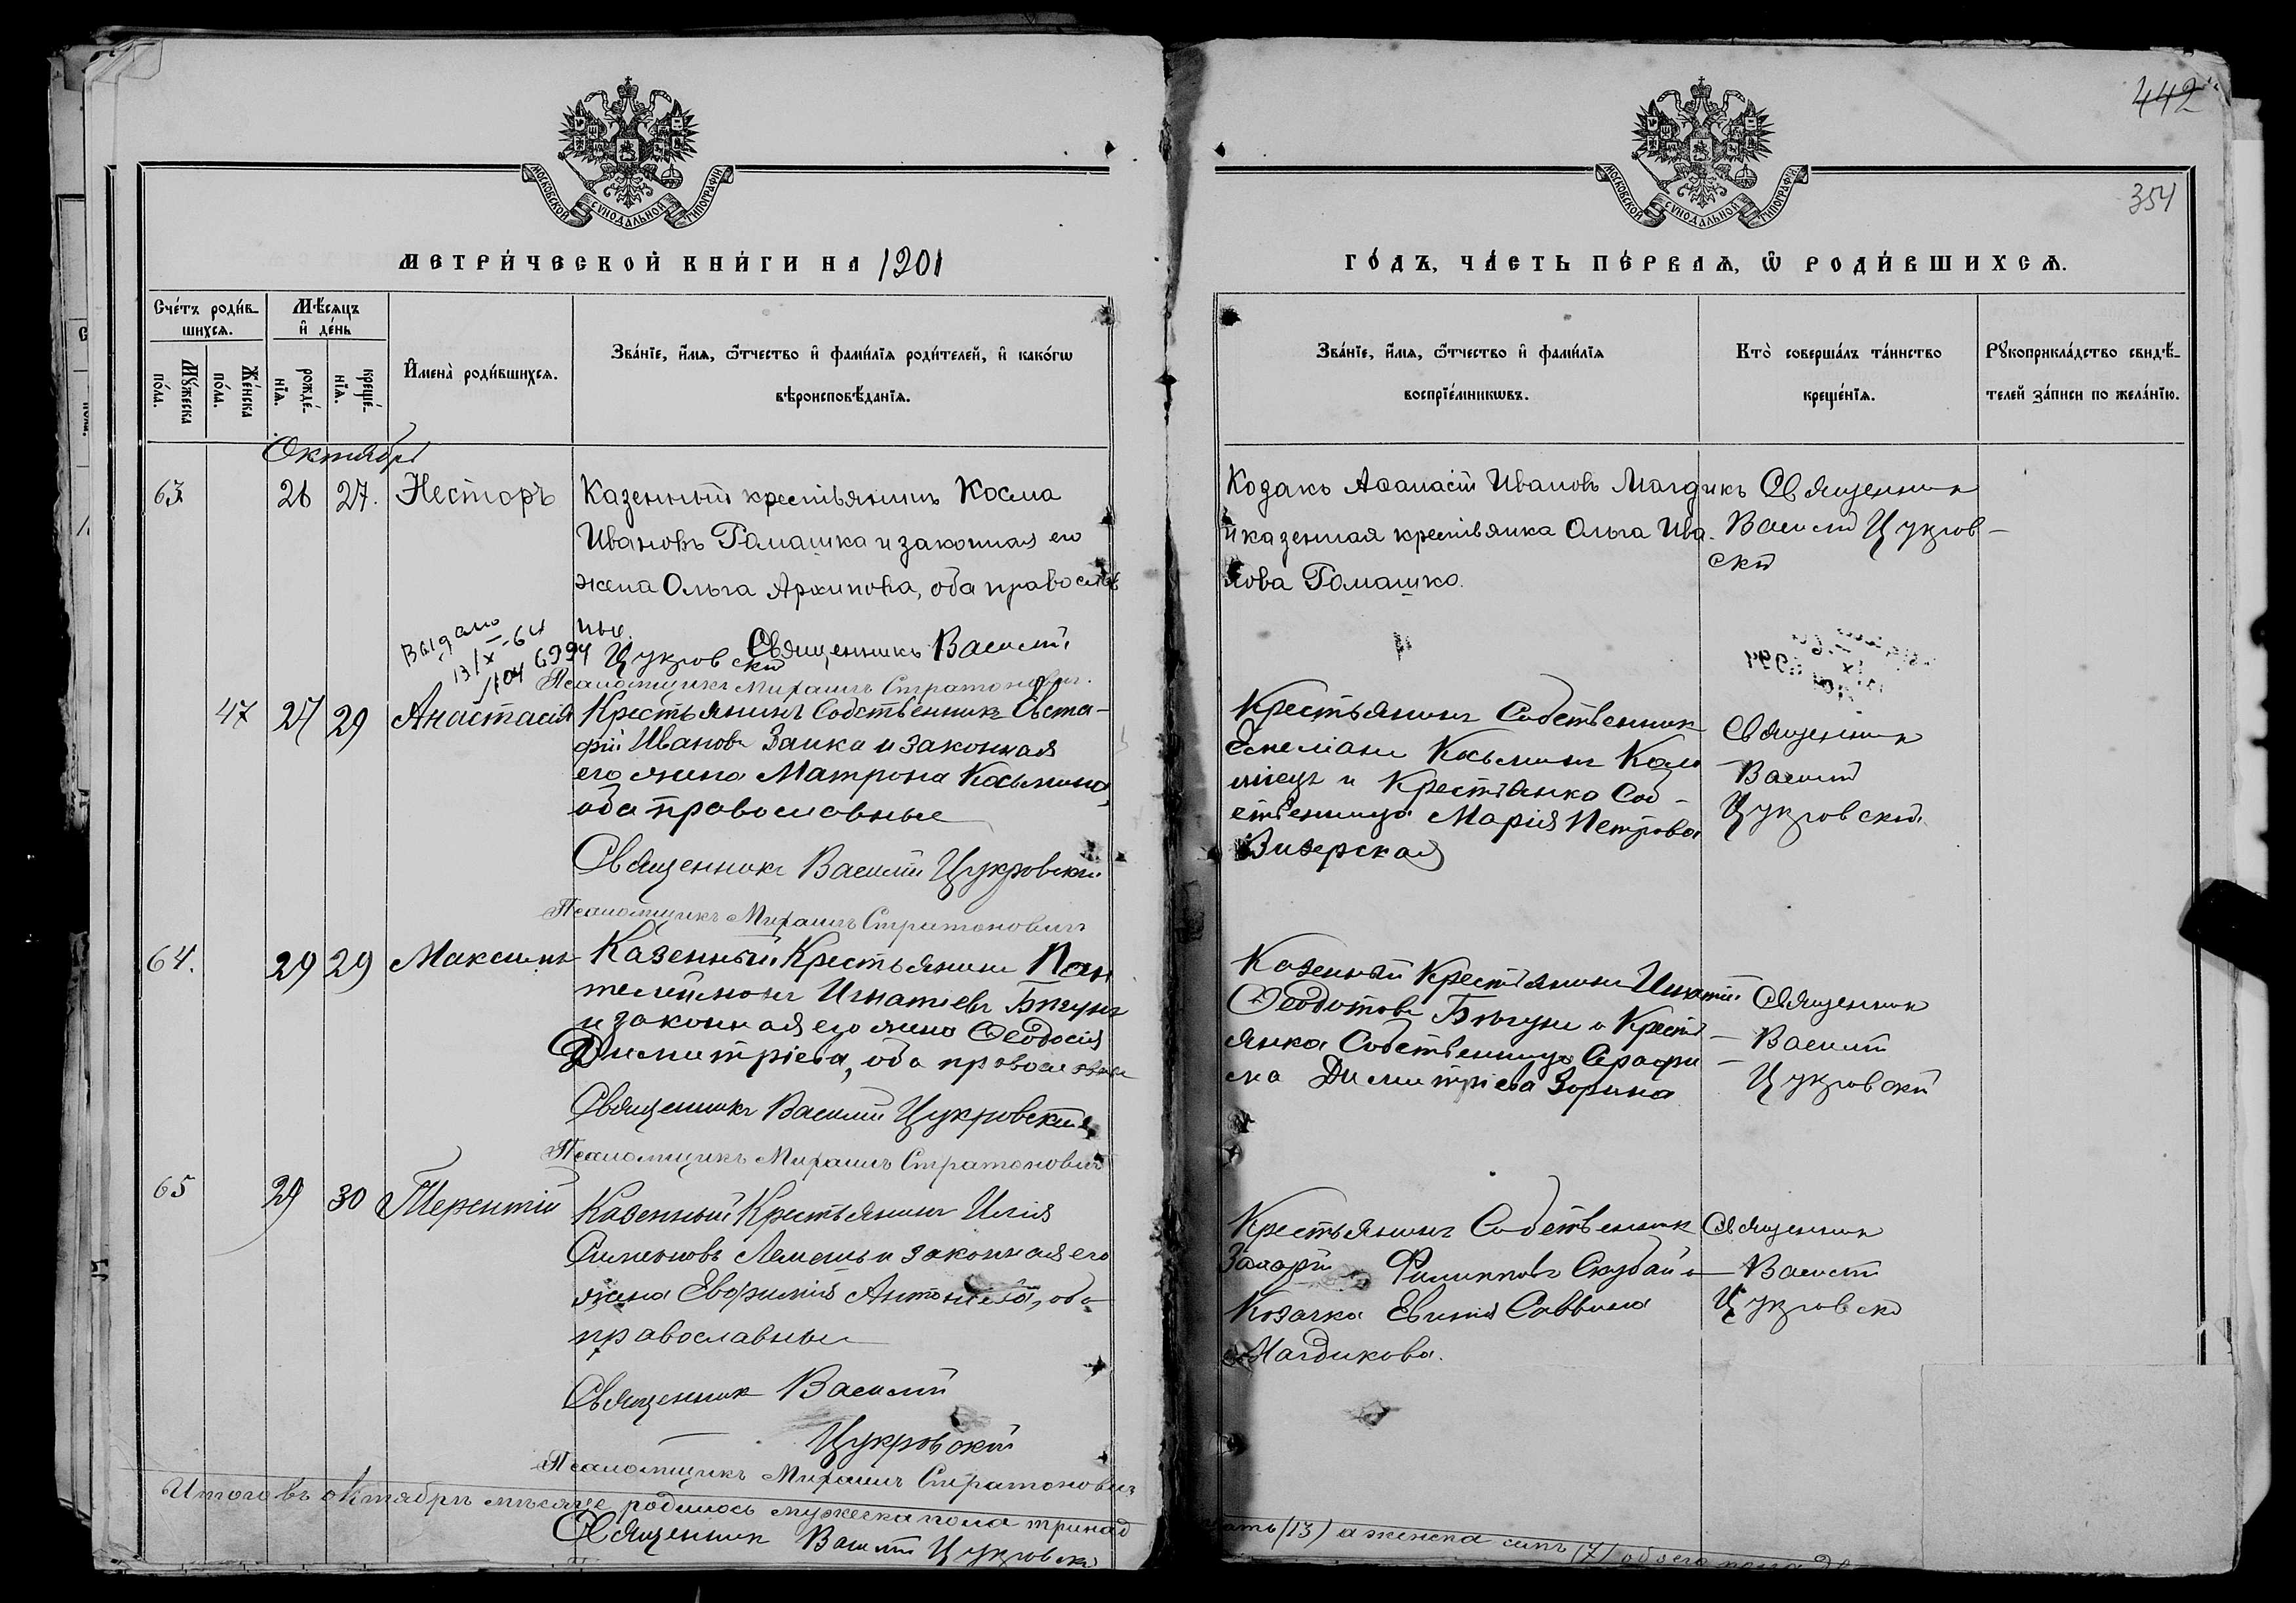 442
354
МОСКОВСКОЙ СѴНОДАЛЬНОЙ ТИПОГРАФІИ
МОСКОВСКОЙ СѴНОДАЛЬНОЙ ТИПОГРАФІИ
МЕТРИ́ЧЕСКОЙ КНИ́ГИ НА 1901
ГО́ДЪ, ЧА́СТЬ ПЕ́РВАЯ, Ѡ҆ РОДИ́ВШИХСЯ.
Сче́тъ роди́в-
шихся.
Мꙋ́жеска
по́ла.
Же́нска
по́ла.
Мѣ́сяцъ
и҆ де́нь
рожде́-
нїя.
креще́-
нїя.
И҆мена̀ роди́вшихся.
Зва́нїе, и҆́мя, ѻ҆́тчество и҆ фами́лїя роди́телей, и҆ како́гѡ
вѣроисповѣ́данїя.
Зва́нїе, и҆́мя, ѻ҆́тчество и҆ фами́лїя
воспрїе́мникѡвъ.
Кто̀ соверша́лъ та́инство
креще́нїя.
Рꙋкоприкла́дство свидѣ́-
телей за́писи по жела́нїю.
Октябрь
63 26 27. Несторъ
Казенный крестьянинъ Косма
Ивановъ Ромашка и законная его
жена Ольга Архипова, оба православ
ные.
Священникъ Василій
Цукровскій
Псаломщикъ Михаилъ Стратоновичъ.
Козакъ Аѳанасій Ивановъ Магдикъ
и казенная крестьянка Ольга Ива-
нова Ромашко.
Священникъ
Василій Цукров-
скій
Выдано
13/X-64
6994
47 27 29 Анастасія
Крестьянинъ Собственникъ Евста-
фій Ивановъ Заика и законная
его жена Матрона Косьмина,
оба православные
Священникъ Василій Цукровскій
Псаломщикъ Михаилъ Стратоновичъ
Крестьянинъ Собственникъ
Емеліанъ Косьминъ
и Крестьянка Соб-
ственница Марія Петрова
Визерская
Священникъ
Василій
Цукровскій.
64. 29 29 Максимъ
Казенный Крестьянинъ Пан
телеймонъ Игнатіевъ Бѣгунъ
и законная его жена Ѳеодосія
Димитріева, оба православные
Священникъ Василій Цукровскій
Псаломщикъ Михаилъ Стратоновичъ
Казенный Крестьянинъ Игнатій
Ѳеодотовъ Бѣгунъ и Кресть-
янка Собственница Серафи-
ма Димитріева Зорина
Священникъ
Василій
Цукровскій
65 29 30 Терентій
Казенный Крестьянинъ Илія
Симеоновъ Лемешъ и законная его
жена Евфимія Антоніева, оба
православные
Священникъ Василій
Цукровскій
Псаломщикъ Михаилъ Стратоновичъ
Крестьянинъ Собственникъ
Захарій Филипповъ Скубай и
Козачка Евгенія Саввина
Магдикова.
Священникъ
Василій
Цукровскій
Итого въ октябрѣ мѣсяцѣ родилось мужеска пола тринад
цать (13) а женска семь (7) обоего пола
Священникъ Василій Цукровскій